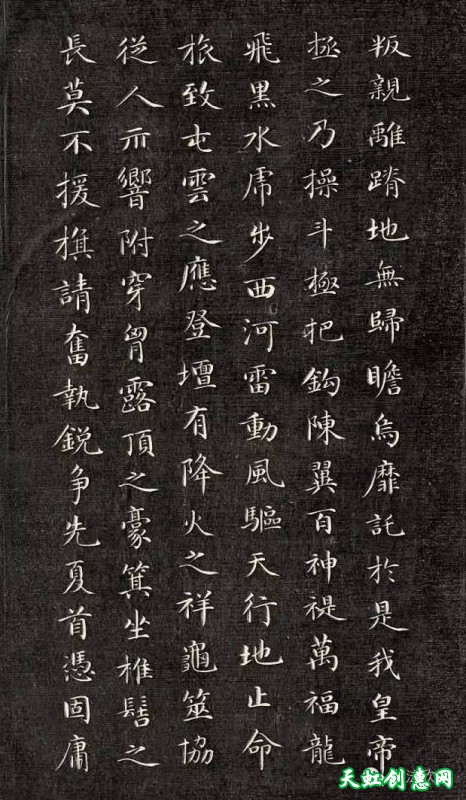 叛親離蹐地無歸瞻烏靡託於是我皇帝
拯之乃操斗極把鈎陳翼百神禔萬福龍
飛黑水虎步西河雷動風驅天行地止命
旅致屯雲之應登壇有降火之祥龜筮協
從人示響附穿胷露頂之豪箕坐椎髻之
長莫不援旗請奮執鋭争先夏首憑固庸
天虹创惠网